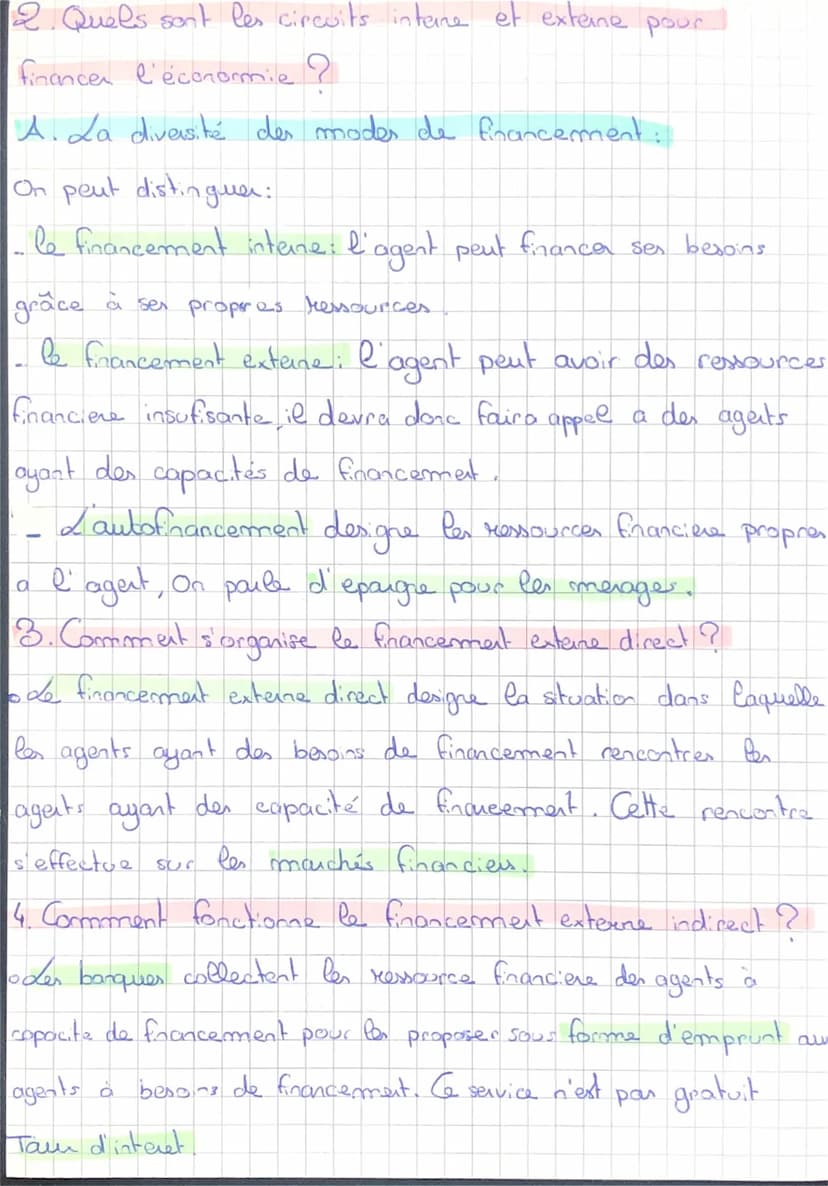 2. Quels sont les circuits interne et externe pour
financer l'économie ?
A. La diversité des modes de financement :
On peut distinguer :
- le financement interne : l'agent peut financer ses besoins
grâce à ses propres ressources.
- le financement externe : l'agent peut avoir des ressources
financiere insufisante, il devra donc faire appel a des agents
ayant des capacités de financement.
- L'autofinancement designe les ressources financiere propres
a l'agent, On parle d'epargne pour les menages.
3. Comment s'organise le financement externe direct ?
o Le financement externe direct designe la situation dans laquelle
les agents ayant des besoins de financement rencontres les
agents ayant des capacité de financement. Cette rencontre
s'effectue sur les marchés financiers.
4. Comment fonctionne le financement externe indirect ?
o Les banques collectent les ressource financiere des agents à
capacite de financement pour les proposer sous forme d'emprunt au
agents à besoins de financement. Ce service n'est pas gratuit
Taux d'interet.